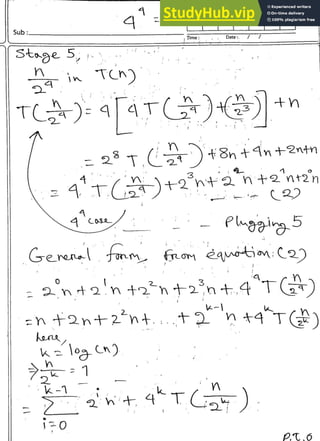 StudyHub.vip
Experienced writers
On-time delivery
100% plagiarism free
4^4 =
Sub :
Time : Date : / /
Stage 5,
n/2^4 in T(n)
T(n/2^4) = 4[4T(n/2^4)+(n/2^3)] +n
= 2^8 T(n/2^4) +8n+4n+2n+n
= 4^4 T(n/2^4) +2^3n+2^2n+2^1n+2^0n
--- (2)
4^4 case
--- Plugging 5
General form from equation: (2)
= 2^0n+2^1n+2^2n+2^3n+4^4T(n/2^4)
=n+2n+2^2n+....+2^(k-1)n+4^kT(n/2^k)
here,
k= log(n)
⇒ n/2^k = 1
= Σ_{i=0}^{k-1} 2^i n + 4^k T(n/2^k)
P.T.O